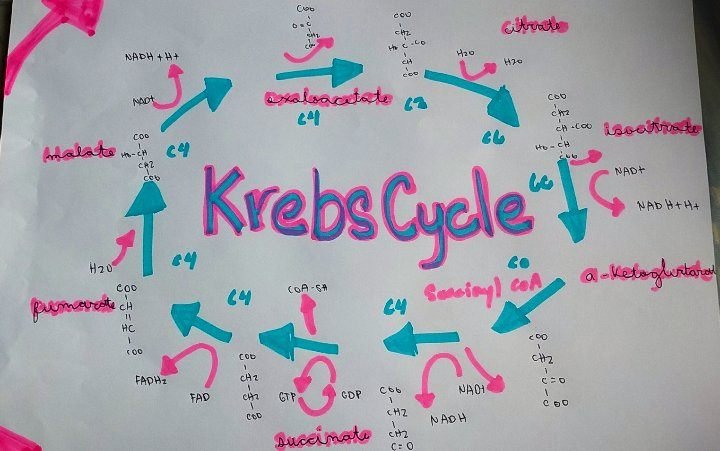 Krebs Cycle
COO
O=C
CH2
COO
oxaloacetate
C4
COO
CH2
HO C-CO
CH
COO
citrate
C3
H2O
H2O
C6
COO
CH2
CH-COO
HO-CH
COO
isocitrate
NAD+
NADH+H+
a-Ketoglutarat
Succinyl CoA
COO
CH2
C=O
COO
NAD+
NADH
C4
COO
CH2
CH2
C=O
CoA-SH
GTP
GDP
succinate
C4
COO
CH2
CH2
COO
FAD
FADH2
fumarate
COO
CH
HC
COO
C4
H2O
malate
COO
HO-CH
CH2
COO
C4
NAD+
NADH+H+